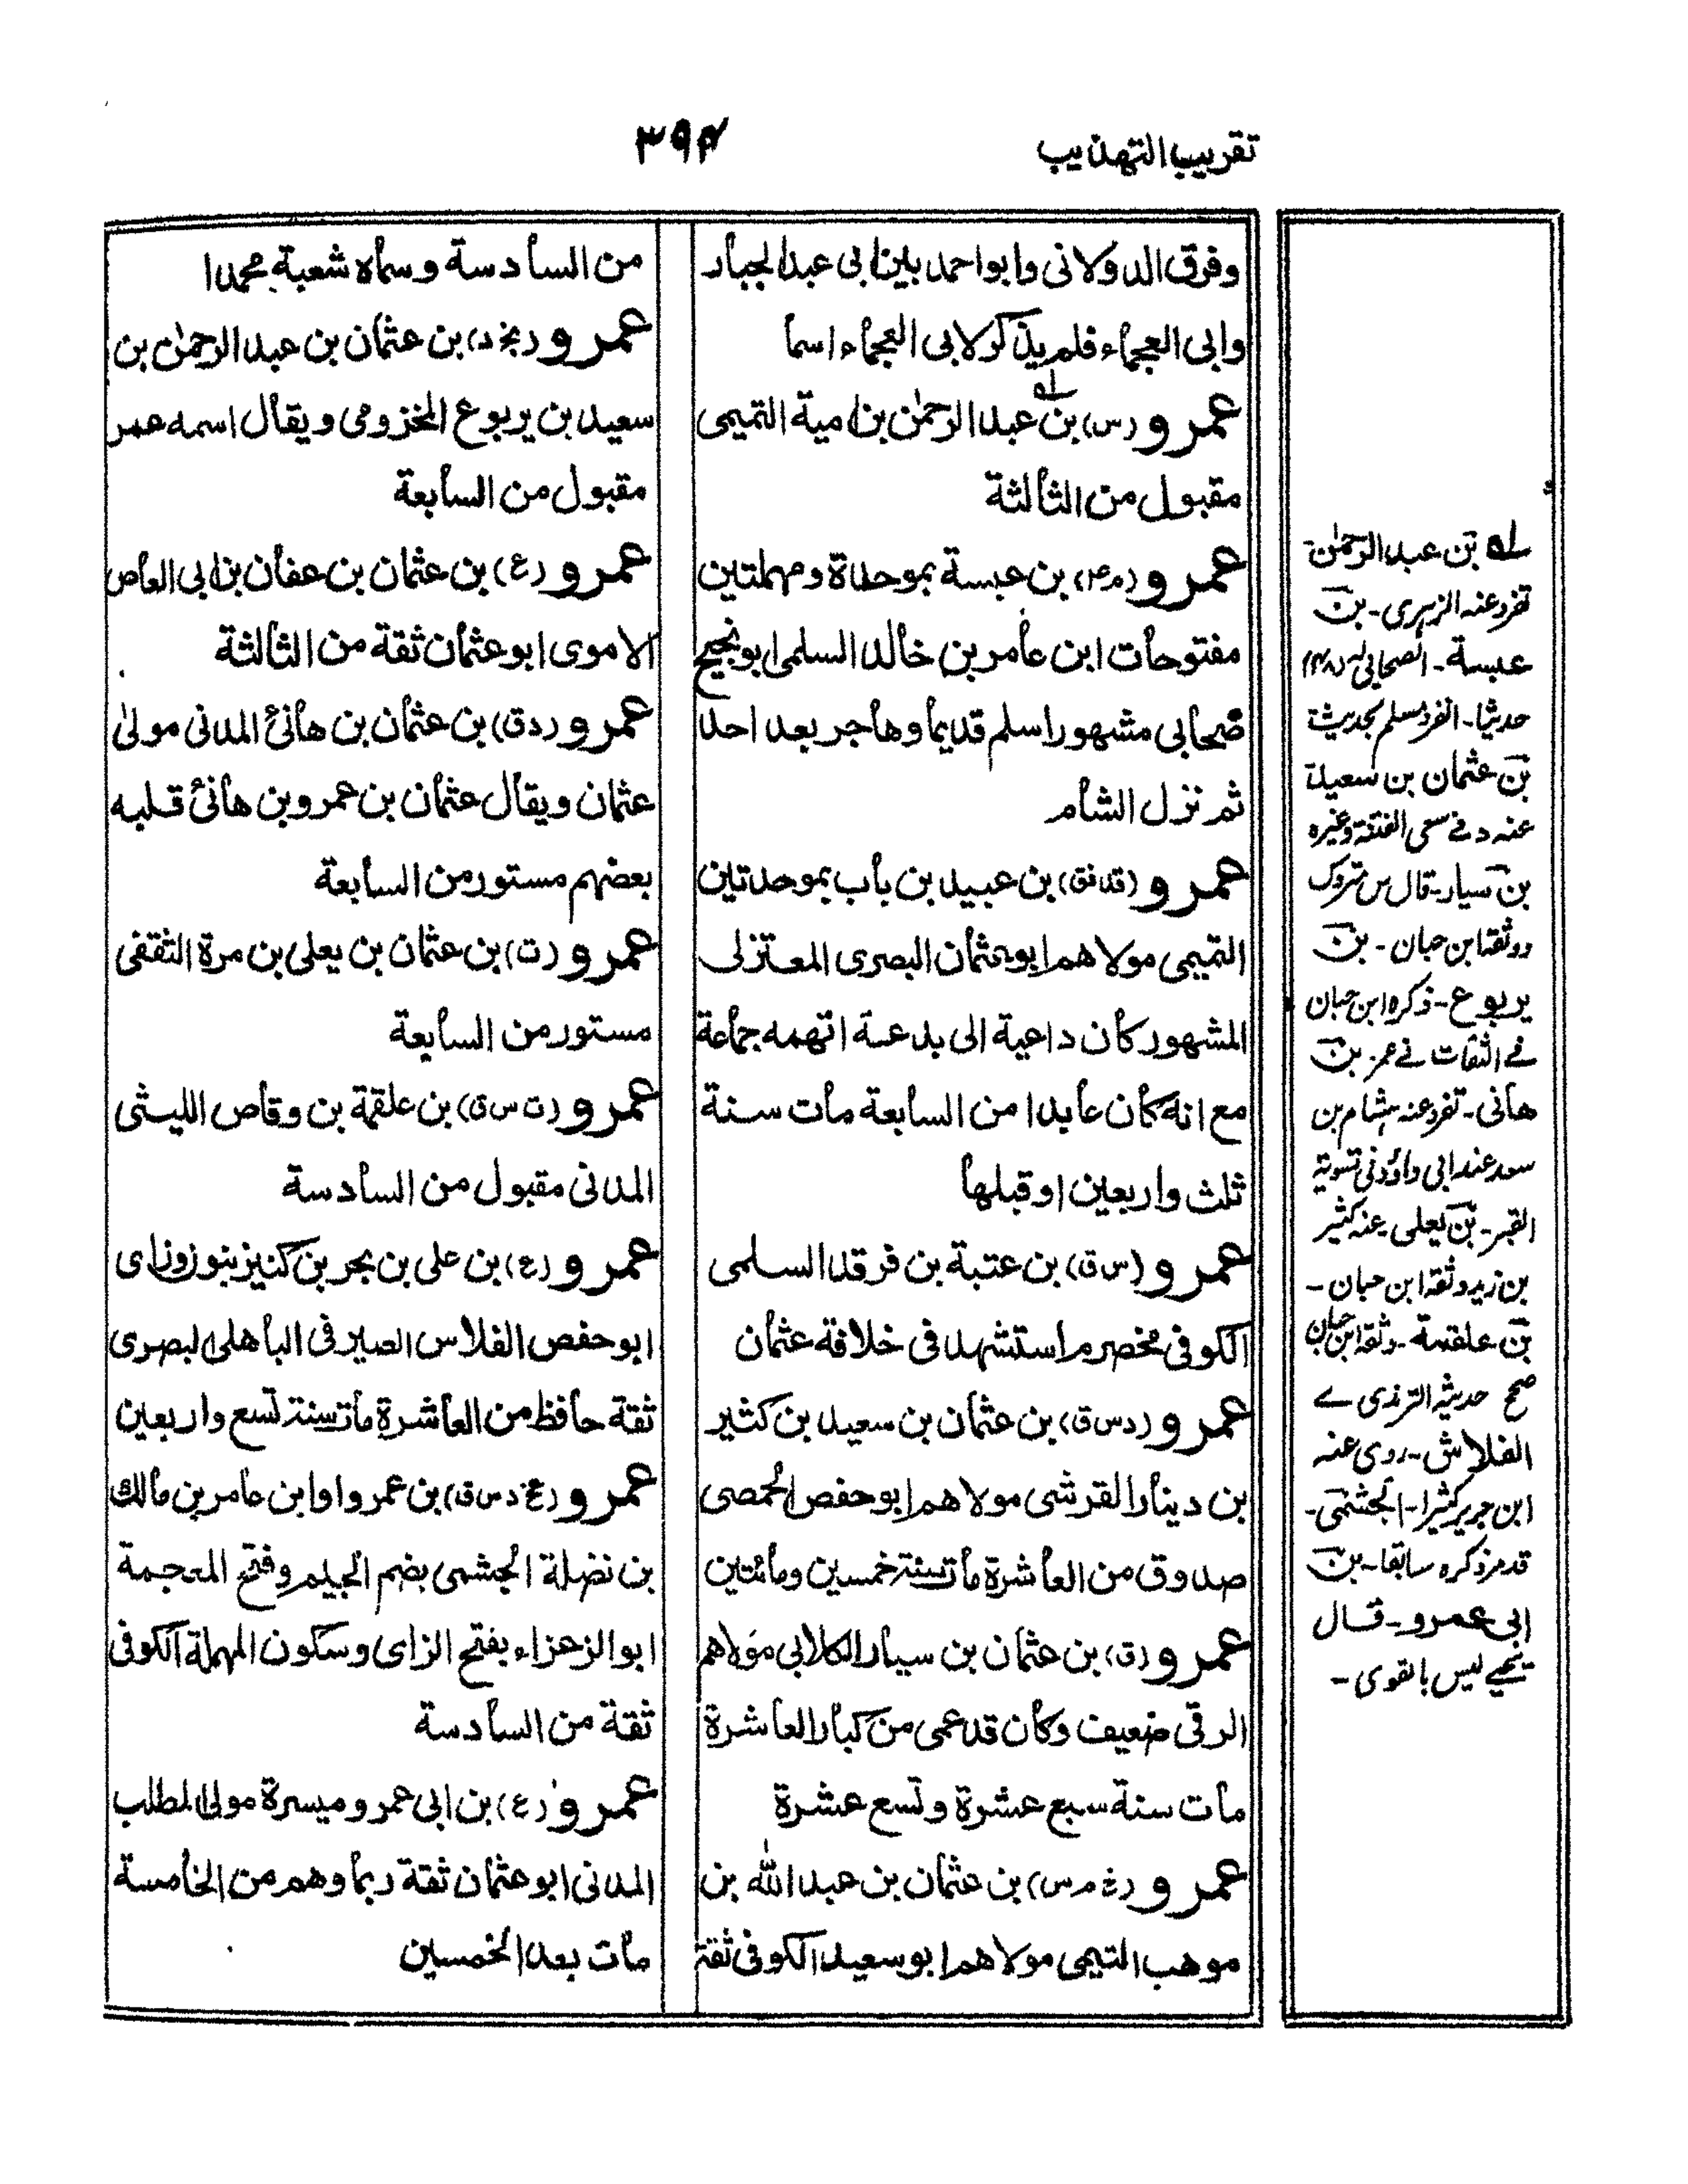 تقريب التهذيب
٣٩٤
وفرق الدولانى وابواحمد بين ابى عبد الجبار
وابى العجماء فلم يذكر لابى العجماء اسما
عمرو (س) بن عبد الرحمٰن بن امية التميمى
مقبول من الثالثة
عمرو (م۴) بن عبسة بموحدة ومهملتين
مفتوحات ابن عامر بن خالد السلمى ابو نجيح
صحابى مشهور اسلم قديما وهاجر بعد احد
ثم نزل الشام
عمرو (قد فق) بن عبيد بن باب بموحدتين
التميمى مولاهم ابو عثمان البصرى المعتزلى
المشهور كان داعية الى بدعة اتهمه جماعة
مع انه كان عابدا من السابعة مات سنة
ثلث واربعين او قبلها
عمرو (س ق) بن عتبة بن فرقد السلمى
الكوفى مخضرم استشهد فى خلافة عثمان
عمرو (د س ق) بن عثمان بن سعيد بن كثير
بن دينار القرشى مولاهم ابو حفص الحمصى
صدوق من العاشرة مات سنة خمسين ومائتين
عمرو (ق) بن عثمان بن سيار الكلابى مولاهم
الرقى ضعيف وكان قد عمى من كبار العاشرة
مات سنة سبع عشرة وتسع عشرة
عمرو (خ م س) بن عثمان بن عبد الله بن
موهب التيمى مولاهم ابو سعيد الكوفى ثقة
من السادسة وسماه شعبة محمدا
عمرو (بخ د) بن عثمان بن عبد الرحمٰن بن
سعيد بن يربوع المخزومى ويقال اسمه عمر
مقبول من السابعة
عمرو (ع) بن عثمان بن عفان بن ابى العاص
الاموى ابو عثمان ثقة من الثالثة
عمرو (د ق) بن عثمان بن هانئ المدنى مولىٰ
عثمان ويقال عثمان بن عمرو بن هانئ قلبه
بعضهم مستور من السابعة
عمرو (ت) بن عثمان بن يعلى بن مرة الثقفى
مستور من السابعة
عمرو (ت س ق) بن علقمة بن وقاص الليثى
المدنى مقبول من السادسة
عمرو (ع) بن على بن بحر بن كنيز بنون وزاى
ابو حفص الفلاس الصيرفى الباهلى البصرى
ثقة حافظ من العاشرة مات سنة تسع واربعين
عمرو (عخ د س ق) بن عمرو او ابن عامر بن مالك
بن نضلة الجشمى بضم الجيم وفتح المعجمة
ابو الزعزاء بفتح الزاى وسكون المهملة الكوفى
ثقة من السادسة
عمرو (ع) بن ابى عمرو ميسرة مولى المطلب
المدنى ابو عثمان ثقة ربما وهم من الخامسة
مات بعد الخمسين
له بن عبد الرحمٰن
تفرد عنه الزهرى - بن
عبسة - الصحابى له (۴۸)
حديثا - انفرد مسلم بحديث
بن عثمان بن سعيد
عنه د فے سعى الفتنة وغيره
بن سيار - قال س متروك
ووثقه ابن حبان - بن
يربوع - ذكره ابن حبان
فے الثقات فے عمر - بن
هانى - تفرد عنه هشام بن
سعد عند ابى داؤد فى تسوية
القبر - بن يعلى عنه كثير
بن زيد وثقه ابن حبان -
بن علقمة - وثقه ابن حبان
صحح حديثه الترمذى ے
الفلاس - روى عنه
ابن جرير كثيرا - الجشمى -
قد مر ذكره سابقا - بن
ابى عمرو - قال
يحيے ليس بالقوى -